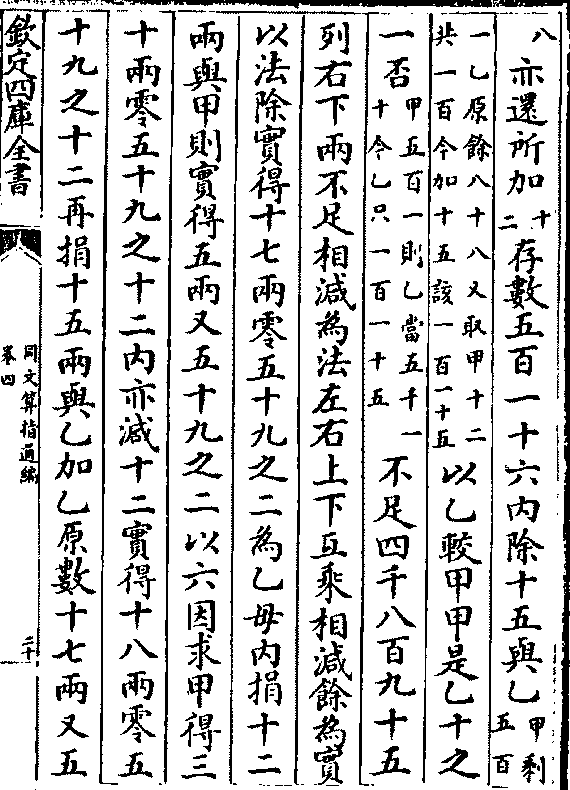 八亦還所加十二存數五百一十六内除十五與乙甲剩五百
一乙原餘八十八又取甲十二共一百今加十五該一百一十五以乙較甲甲是乙十之
一否甲五百一則乙當五千一十今乙只一百一十五不足四千八百九十五
列右下兩不足相減為法左右上下互乘相減餘為實
以法除實得十七兩零五十九之二為乙毋内捐十二
兩與甲則實得五兩又五十九之二以六因求甲得三
十兩零五十九之十二内亦減十二實得十八兩零五
十九之十二再捐十五兩與乙加乙原數十七兩又五
欽定四庫全書
同文算指通編
卷四
二十